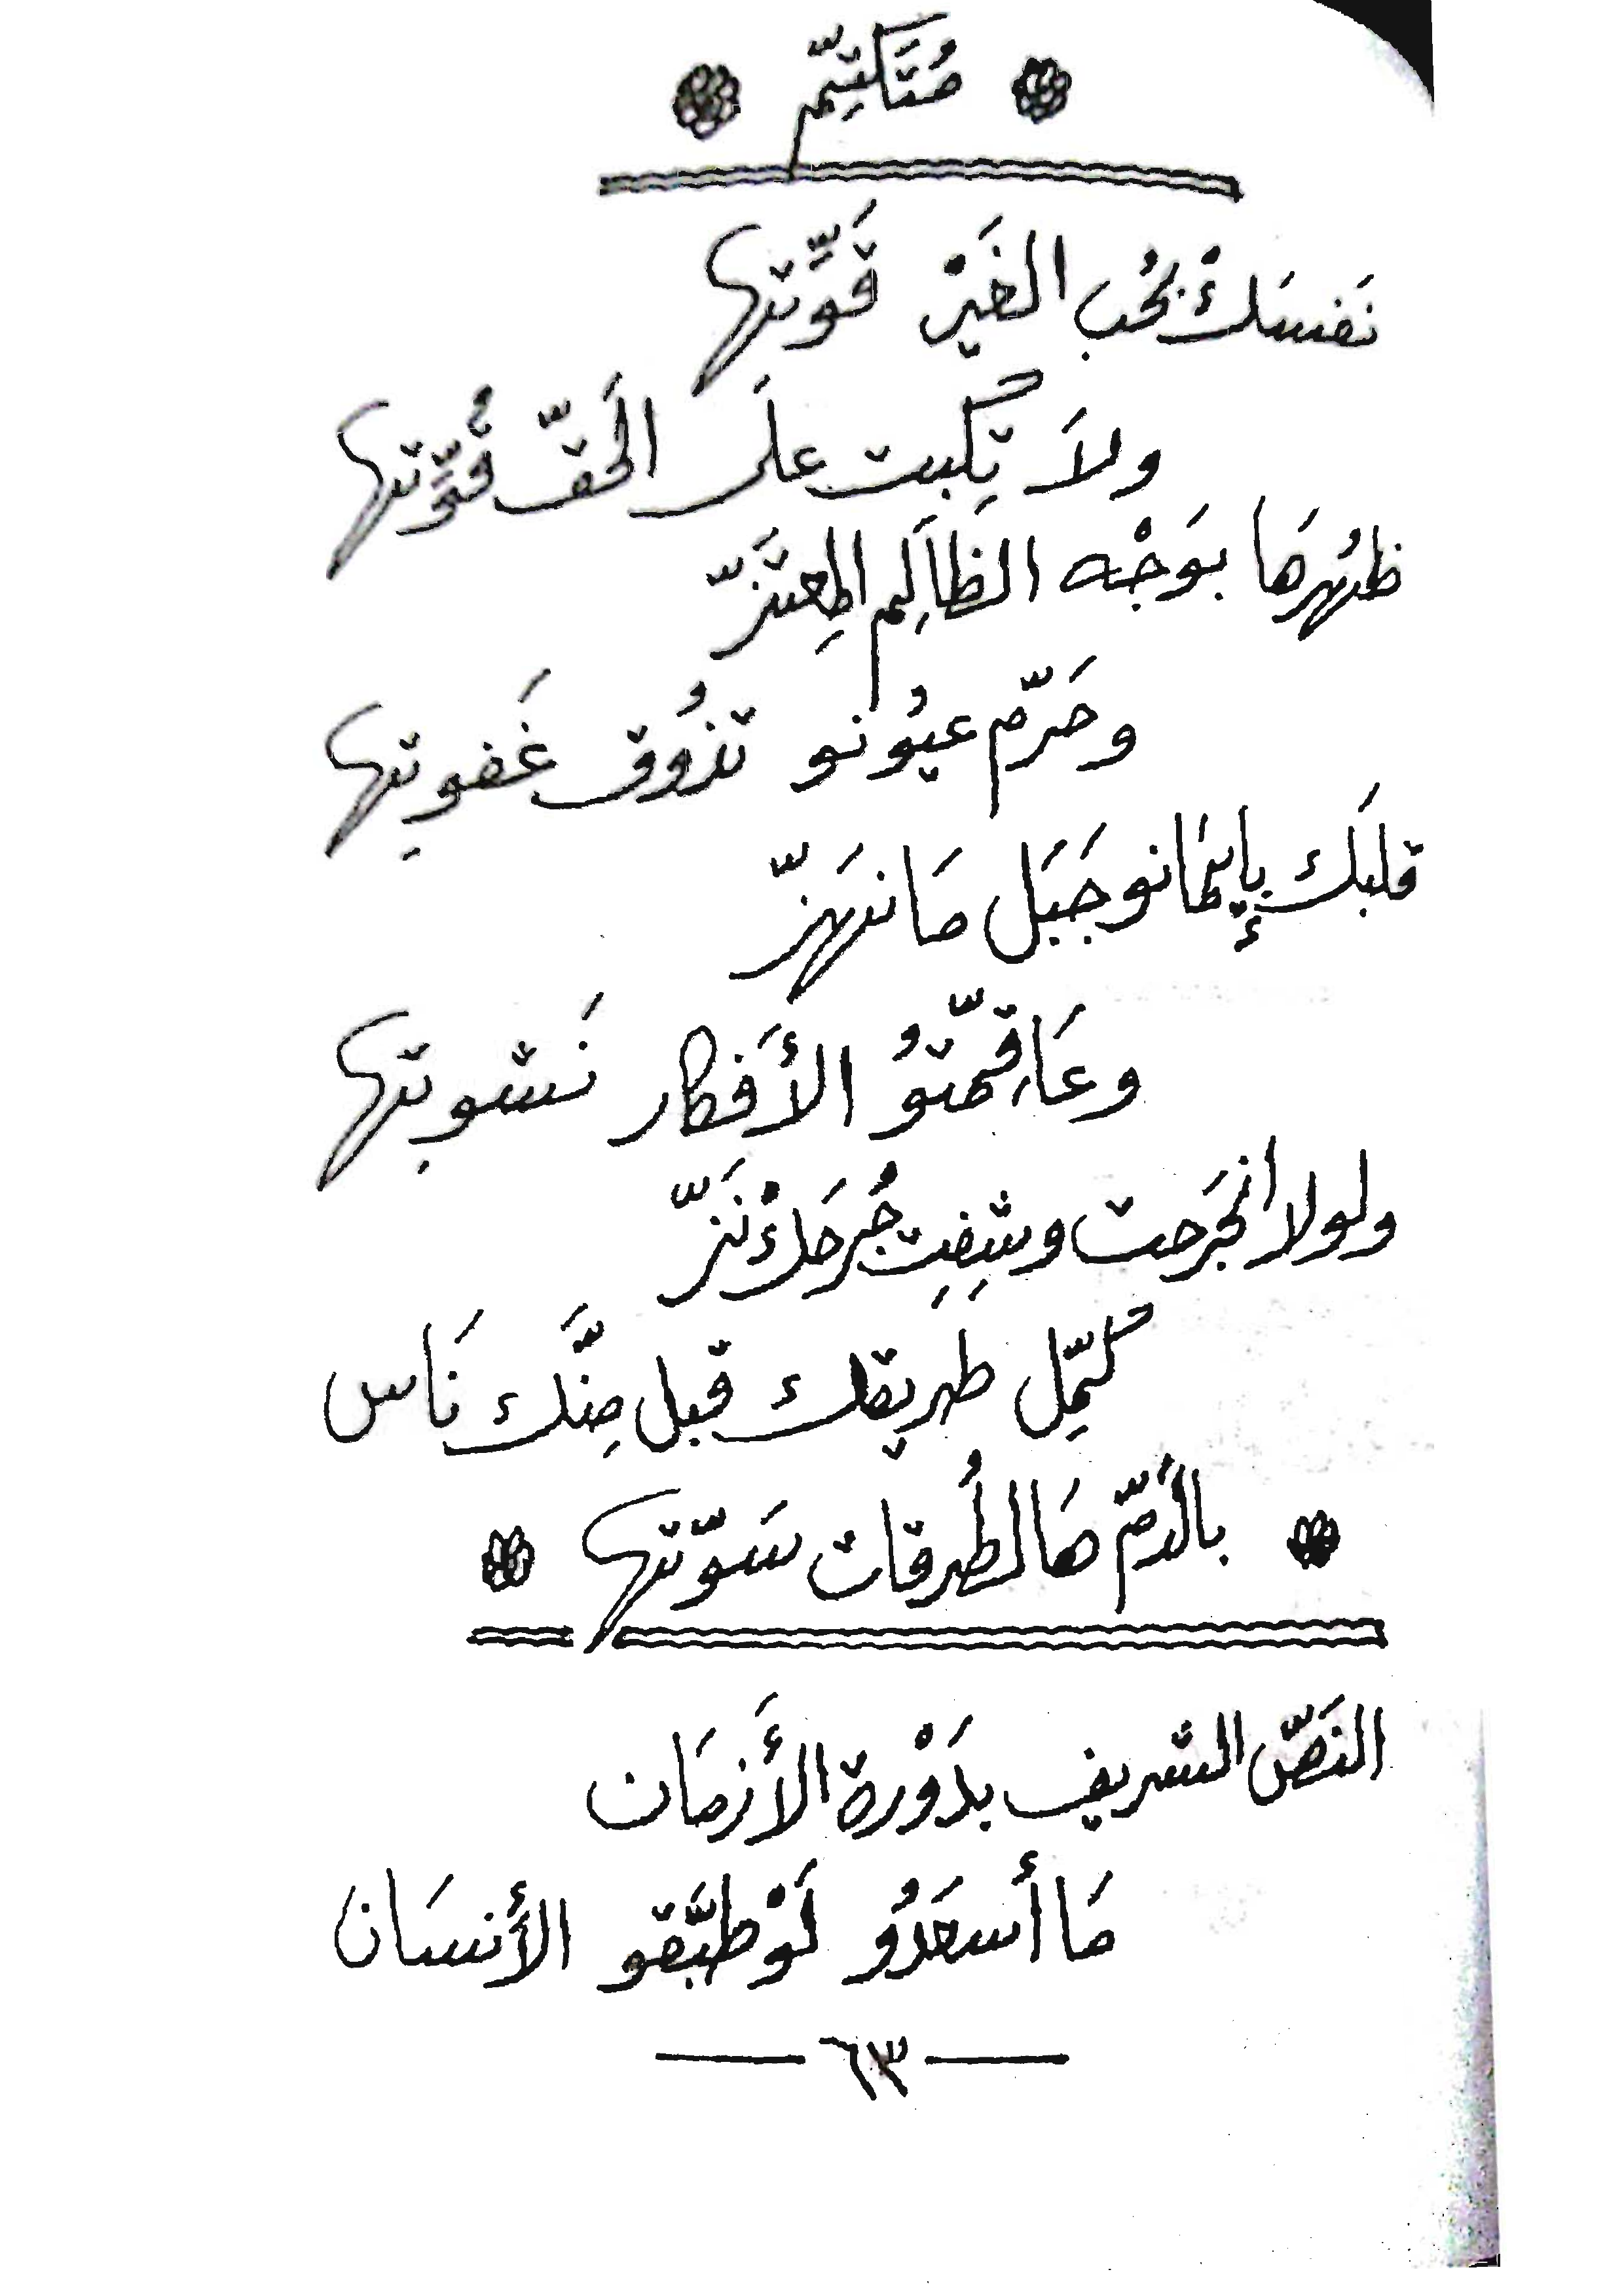 مُتَكتِّم
نَفسَكْ بحُب الخَيْر قَوِّيتها
ولاَ تِكبت علَى الحَقّ قُوّتها
ظهُرهَا بوَجْه الظاَلِم المِعتَزّ
وحَرّم عيُونو تذُوق غَفوِتها
قلبَك بإِيمَانو جَبَل مَا نهَزّ
وعَا قِمّتوُ الأَفكار نَشوِتها
ولولا أنجَرحت وشِفِت جُرحَكْ نَزّ
كَمِّل طريقك قبل مِنَّك نَاس
بالدَمّ هَالطُرقات سَوّتها
النَصّ الشريف بدَوْرة الأَزمَان
مَا أسعَدُو لَوْ طبَّقو الأنسَان
— ٦٣ —